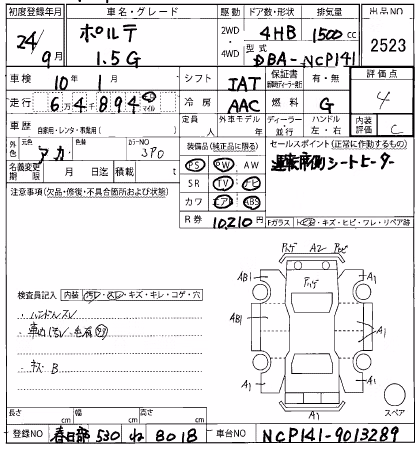 初度登録年月 車名・グレード 駆動 ドア数・形状 排気量 出品NO
24/9月 ポルテ 1.5G 2WD・4WD 4HB 1500cc 2523
型式 DBA-NCP141
車検 10年 1月 シフト IAT 保証書 有・無 評価点
走行 64894 マイル 冷房 AAC 燃料 G 4
車歴 自家用・レンタ・事業用( ) 定員 人 外車モデル 年 ディーラー 並行 ハンドル 左・右 内装評価 C
外色 元色 アカ 色替 カラーNO 3P0 装備品(純正品に限る) セールスポイント(正常に作動するもの)
PS PW AW 運転席側シートヒーター
名義変更期限 月 日迄 積載 t SR TV ナビ
注意事項(欠品・修復・不具合箇所および状態) カワ エアB ABS
R券 10,210円 Fガラス キズ・ヒビ・ワレ・リペア跡
検査員記入 内装 汚レ・スレ・キズ・キレ・コゲ・穴
・ハンドルスレ
・キズ B
A2
AB1 A1
AB1 A1
A1 A1
A1
スペア
長さ cm 幅 cm 高さ cm
登録NO 春日部 530 ね 8018 車台NO NCP141-9013289